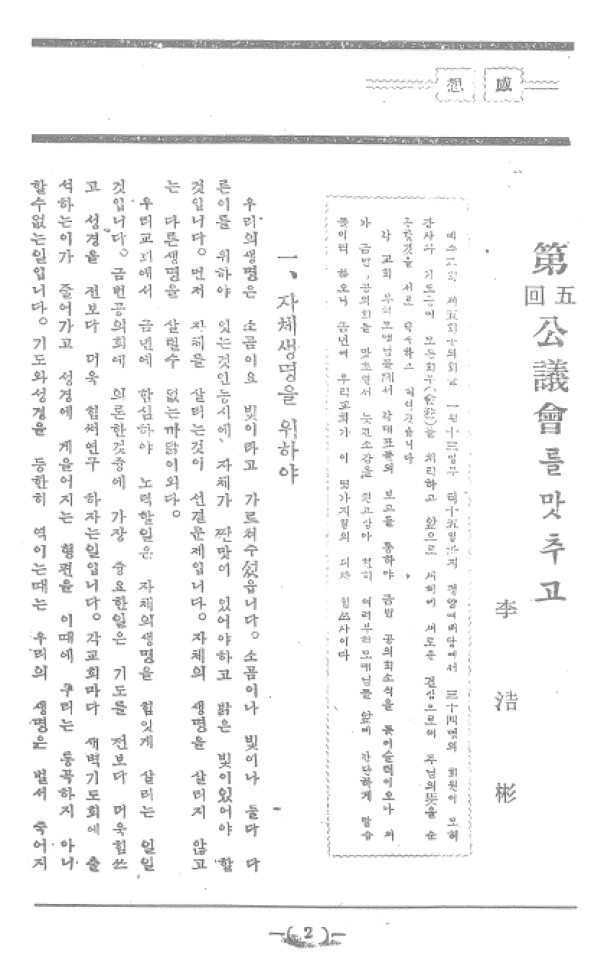 感想
第五回公議會를맛추고
李浩彬
예수교회 제五회공의회는 一월十三일부터十五일까지 평양예배당에서 三十四명의 회원이 모혀
감사와 기도중에 모든회무(會務)를 처리하고 앞으로 새해에 새로운 결심으로써 주님의뜻을 순
종할것을 서로
각 교회 부형모매님들께서 각대표들의 보고를 통하야 금번 공의회소식을 들이슬터이오나 저
가 금번 공의회를 맛초면서 늣긴소감을 가지고 여러부형모매님들 앞에 간단하게 말슴
들이려 하오니 금년에 우리교회가 이 몇가지일의 힘쓰사이다
一、자체생명을 위하야
우리의생명은 소곰이요 빛이라고 가르처주섰읍니다。소곰이나 빛이나 둘다 다
른이를 위하야 잇는것인동시에、자체가 짠맛이 있어야하고 밝은 빛이있어야 할
것입니다。먼저 자체를 살리는것이 선결문제입니다。자체의 생명을 살리지 않고
는 다른생명을 살릴수 없는까닭이외다。
우리교회에서 금년에 합심하야 노력할일은 자체의생명을 힘잇게 살리는 일일
것입니다。금번공의회에 의론한것중에 가장 중요한일은 기도를 전보다 더욱힘쓰
고 성경을 전보다 더욱 힘써연구 하자는일입니다。각교회마다 새벽기도회에 출
석하는이가 줄어가고 성경에 게을어지는 형편을 이때에 우리는 통곡하지 아니
할수없는일입니다。기도와성경을 등한히 역이는때는 우리의 생명은 벌서 죽어지
—( 2 )—